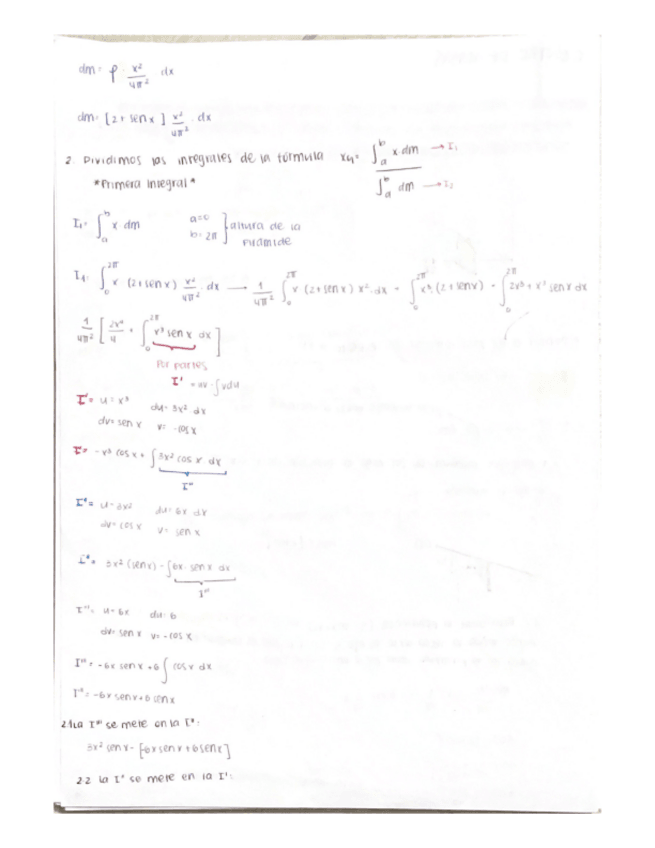 dm = ρ · x²/4π² dx
dm = [2 + sen x] x²/4π² · dx
2. Dividimos las integrales de la fórmula x₄ = ∫ₐᵇ x dm → I₁ / ∫ₐᵇ dm → I₂
*Primera Integral*
I₁ = ∫ₐᵇ x · dm a=0 b=2π } altura de la pirámide
I₁ = ∫₀^2π x (2+sen x) x²/4π² · dx → 1/4π² ∫₀^2π x (2+sen x) x² · dx = ∫₀^2π x³ (2+sen x) = ∫₀^2π 2x³ + x³ sen x dx
1/4π² [ 2x⁴/4 + ∫₀^2π x³ sen x dx ]
Por partes
I' = uv - ∫ v du
I' = u = x³ du = 3x² dx
dv = sen x v = -cos x
I' = -x³ cos x + ∫ 3x² cos x dx
I''
I'' = u = 3x² du = 6x dx
dv = cos x v = sen x
I'' = 3x² (sen x) - ∫ 6x · sen x dx
I'''
I''' = u = 6x du = 6
dv = sen x v = -cos x
I''' = -6x sen x + 6 ∫ cos x dx
I''' = -6x sen x + 6 sen x
2.1 La I''' se mete en la I'':
3x² sen x - [6x sen x + 6 sen x]
2.2 La I'' se mete en la I':